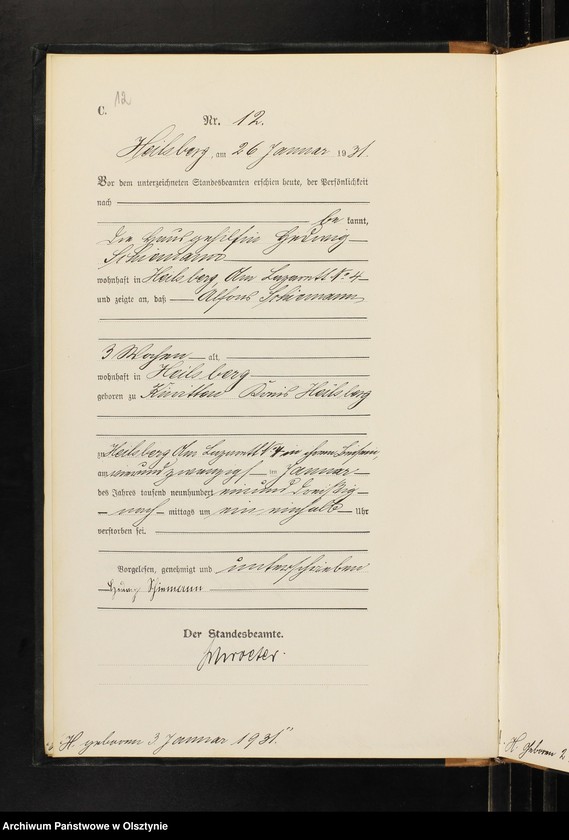 12
C.
Nr. 12.
Heilsberg, am 26 Januar 1931.
Vor dem unterzeichneten Standesbeamten erschien heute, der Persönlichkeit
nach
be kannt,
die Hausgehilfin Hedwig
Schiemann
wohnhaft in Heilsberg, Am Lazarett Nr 4
und zeigte an, daß Alfons Schiemann,
3 Wochen alt,
wohnhaft in Heilsberg
geboren zu Kiwitten Kreis Heilsberg
zu Heilsberg Am Lazarett Nr 4 in ihrem Beisein,
am zwanzigsten Januar
des Jahres tausend neunhundert einund dreißig
nach mittags um ein einhalb Uhr
verstorben sei.
Vorgelesen, genehmigt und unterschrieben
Hedwig Schiemann
Der Standesbeamte.
H. geboren 3 Januar 1931."
H. geboren 2
Archiwum Państwowe w Olsztynie